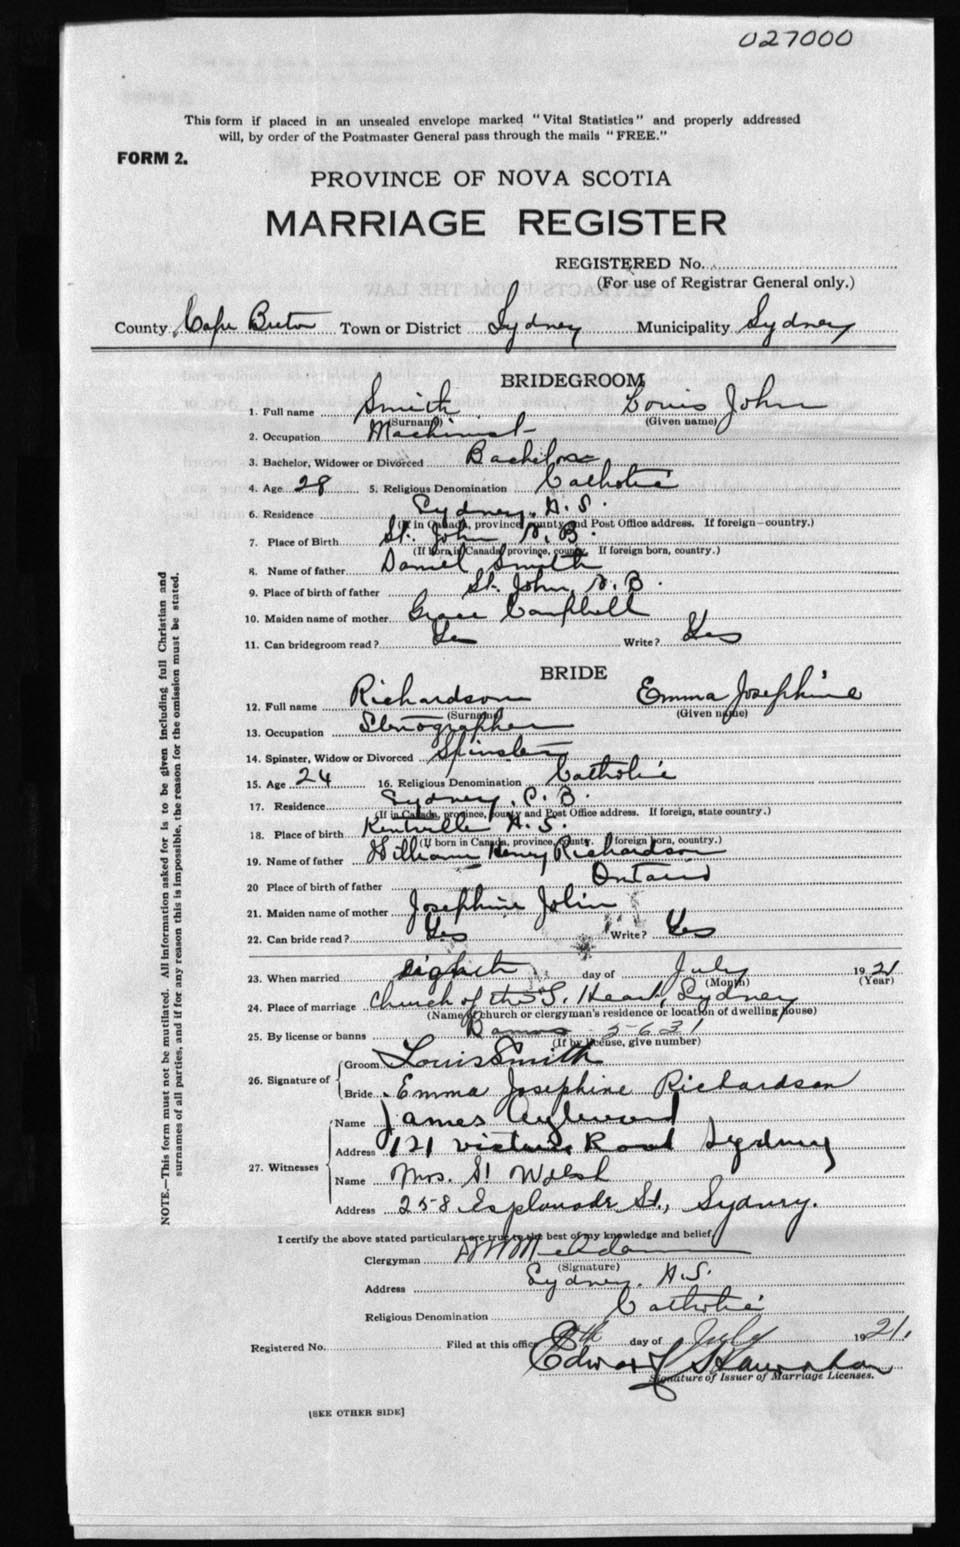 027000
This form if placed in an unsealed envelope marked "Vital Statistics" and properly addressed
will, by order of the Postmaster General pass through the mails "FREE."
FORM 2.
PROVINCE OF NOVA SCOTIA
MARRIAGE REGISTER
REGISTERED No.
(For use of Registrar General only.)
County Cape Breton Town or District Sydney Municipality Sydney
BRIDEGROOM
1. Full name Smith Louis John
(Surname) (Given name)
2. Occupation Machinist
3. Bachelor, Widower or Divorced Bachelor
4. Age 28 5. Religious Denomination Catholic
6. Residence Sydney, N.S.
(If in Canada, province, county and Post Office address. If foreign—country.)
7. Place of Birth St. John N.B.
(If born in Canada, province, county. If foreign born, country.)
8. Name of father Daniel Smith
9. Place of birth of father St. John, N.B.
10. Maiden name of mother Grace Campbell
11. Can bridegroom read? Yes Write? Yes
BRIDE
12. Full name Richardson Emma Josephine
(Surname) (Given name)
13. Occupation Stenographer
14. Spinster, Widow or Divorced Spinster
15. Age 24 16. Religious Denomination Catholic
17. Residence Sydney, C.B.
(If in Canada, province, county and Post Office address. If foreign, state country.)
18. Place of birth Kentville N.S.
(If born in Canada, province, county. If foreign born, country.)
19. Name of father William Henry Richardson
20 Place of birth of father Ontario
21. Maiden name of mother Josephine Jolin
22. Can bride read? Yes Write? Yes
23. When married Eighth day of July 1921
(Month) (Year)
24. Place of marriage Church of the S. Heart, Sydney
(Name of church or clergyman's residence or location of dwelling house)
25. By license or banns Banns 5631
(If by license, give number)
26. Signature of Groom Louis Smith
Bride Emma Josephine Richardson
27. Witnesses Name James Aylward
Address 121 Victoria Road Sydney
Name Mrs. St Walsh
Address 258 Esplanade St., Sydney.
I certify the above stated particulars are true to the best of my knowledge and belief
Clergyman McAdam
(Signature)
Address Sydney, N.S.
Religious Denomination Catholic
Registered No. Filed at this office 8th day of July 1921.
Edward
Signature of Issuer of Marriage Licenses.
[SEE OTHER SIDE]
NOTE.—This form must not be mutilated. All information asked for is to be given including full Christian and
surnames of all parties, and if for any reason this is impossible, the reason for the omission must be stated.